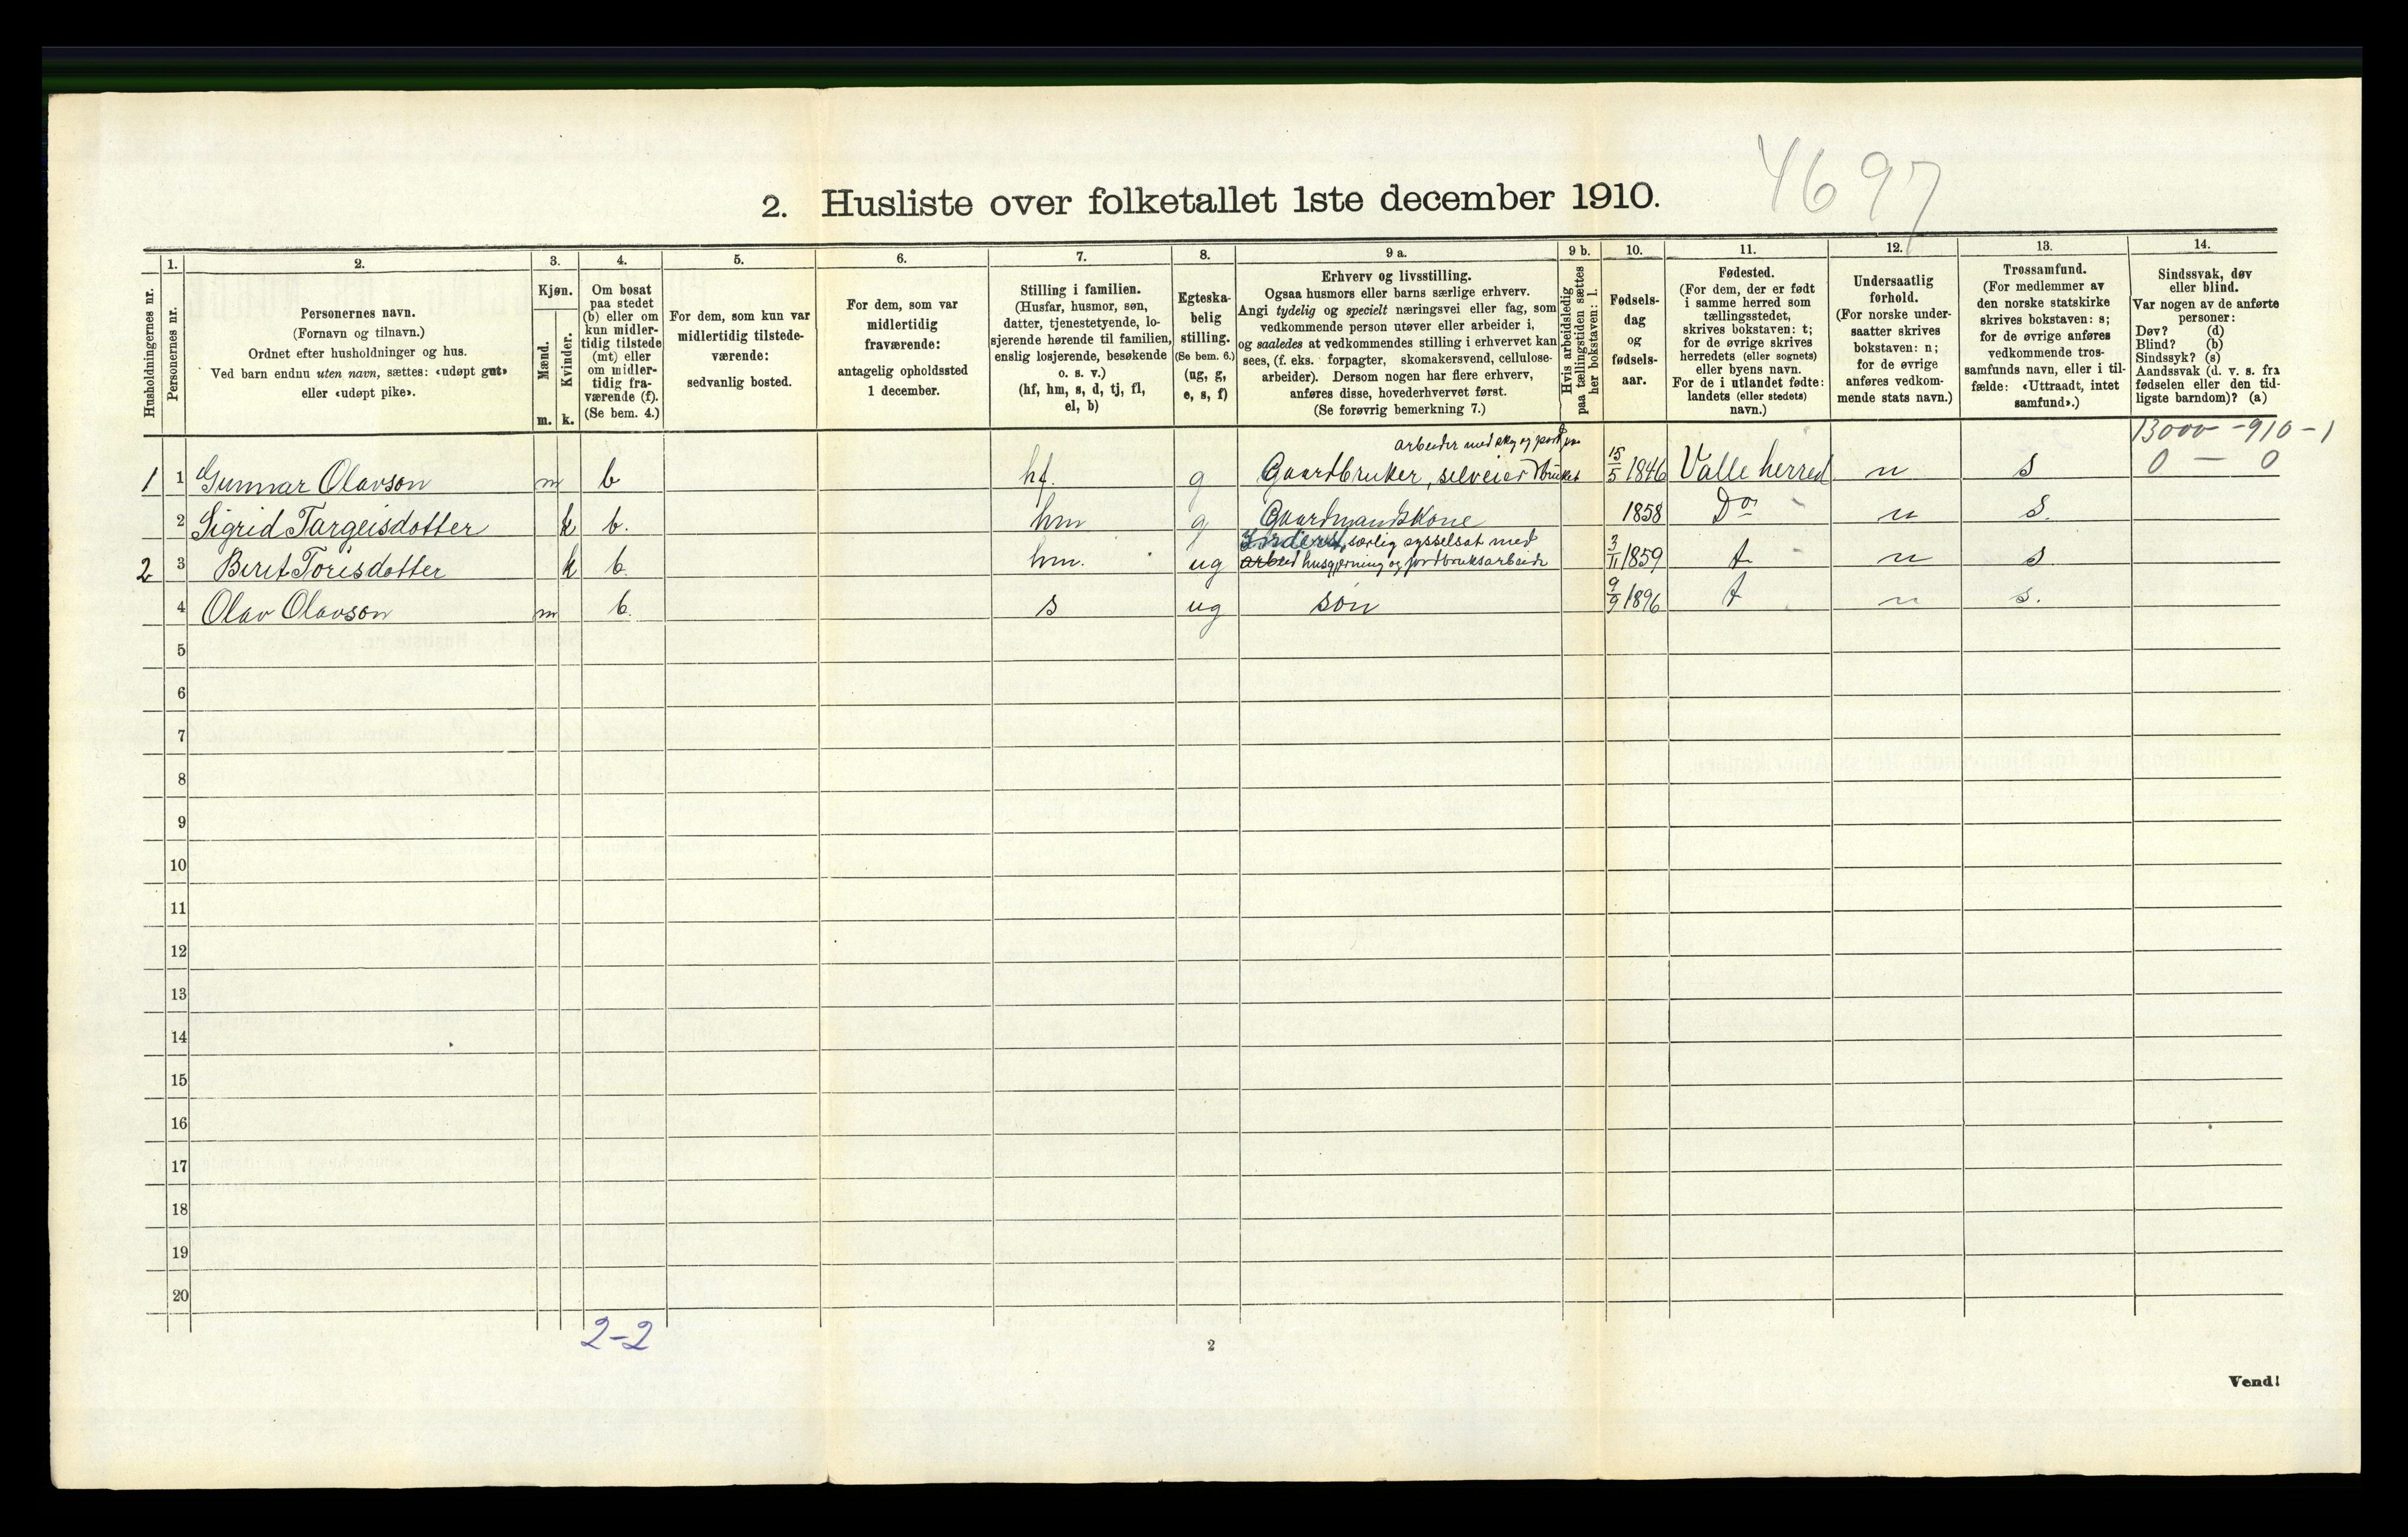 4697
2. Husliste over folketallet 1ste december 1910.
Husholdningernes nr.
1.
Personernes nr.
2.
Personernes navn.
(Fornavn og tilnavn.)
Ordnet efter husholdninger og hus.
Ved barn endnu uten navn, sættes: «udøpt gut»
eller «udøpt pike».
3.
Kjøn.
Mænd.
Kvinder.
m. k.
4.
Om bosat
paa stedet
(b) eller om
kun midler-
tidig tilstede
(mt) eller
om midler-
tidig fra-
værende (f).
(Se bem. 4.)
5.
For dem, som kun var
midlertidig tilstede-
værende:
sedvanlig bosted.
6.
For dem, som var
midlertidig
fraværende:
antagelig opholdssted
1 december.
7.
Stilling i familien.
(Husfar, husmor, søn,
datter, tjenestetyende, lo-
sjerende hørende til familien,
enslig losjerende, besøkende
o. s. v.)
(hf, hm, s, d, tj, fl,
el, b)
8.
Egteska-
belig
stilling.
(Se bem. 6.)
(ug, g,
e, s, f)
9 a.
Erhverv og livsstilling.
Ogsaa husmors eller barns særlige erhverv.
Angi tydelig og specielt næringsvei eller fag, som
vedkommende person utøver eller arbeider i,
og saaledes at vedkommendes stilling i erhvervet kan
sees, (f. eks. forpagter, skomakersvend, cellulose-
arbeider). Dersom nogen har flere erhverv,
anføres disse, hovederhvervet først.
(Se forøvrig bemerkning 7.)
9 b.
Hvis arbeidsledig
paa tællingstiden sættes
her bokstaven: l.
10.
Fødsels-
dag
og
fødsels-
aar.
11.
Fødested.
(For dem, der er født
i samme herred som
tællingsstedet,
skrives bokstaven: t;
for de øvrige skrives
herredets (eller sognets)
eller byens navn.
For de i utlandet fødte:
landets (eller stedets)
navn.)
12.
Undersaatlig
forhold.
(For norske under-
saatter skrives
bokstaven: n;
for de øvrige
anføres vedkom-
mende stats navn.)
13.
Trossamfund.
(For medlemmer av
den norske statskirke
skrives bokstaven: s;
for de øvrige anføres
vedkommende tros-
samfunds navn, eller i til-
fælde: «Uttraadt, intet
samfund».)
14.
Sindssvak, døv
eller blind.
Var nogen av de anførte
personer:
Døv? (d)
Blind? (b)
Sindssyk? (s)
Aandssvak (d. v. s. fra
fødselen eller den tid-
ligste barndom)? (a)
13000 - 910 - 1
0 — 0
arbeider med skog og jord paa
1 1 Gunnar Olavson m b hf. g Gaardbruker, selveier bruket 15/5 1846 Valle herred n s
2 Sigrid Targeisdotter k b. hm g Gaardmandskone 1858 Do n s.
særlig sysselsat med
2 3 Berit Torisdotter k b. hm. ug arbeid husgjerning og jordbruksarbeide 3/11 1859 t n s
4 Olav Olavson m b. s ug søn 9/9 1896 t n s.
5
6
7
8
9
10
11
12
13
14
15
16
17
18
19
20
2-2
2
Vend!